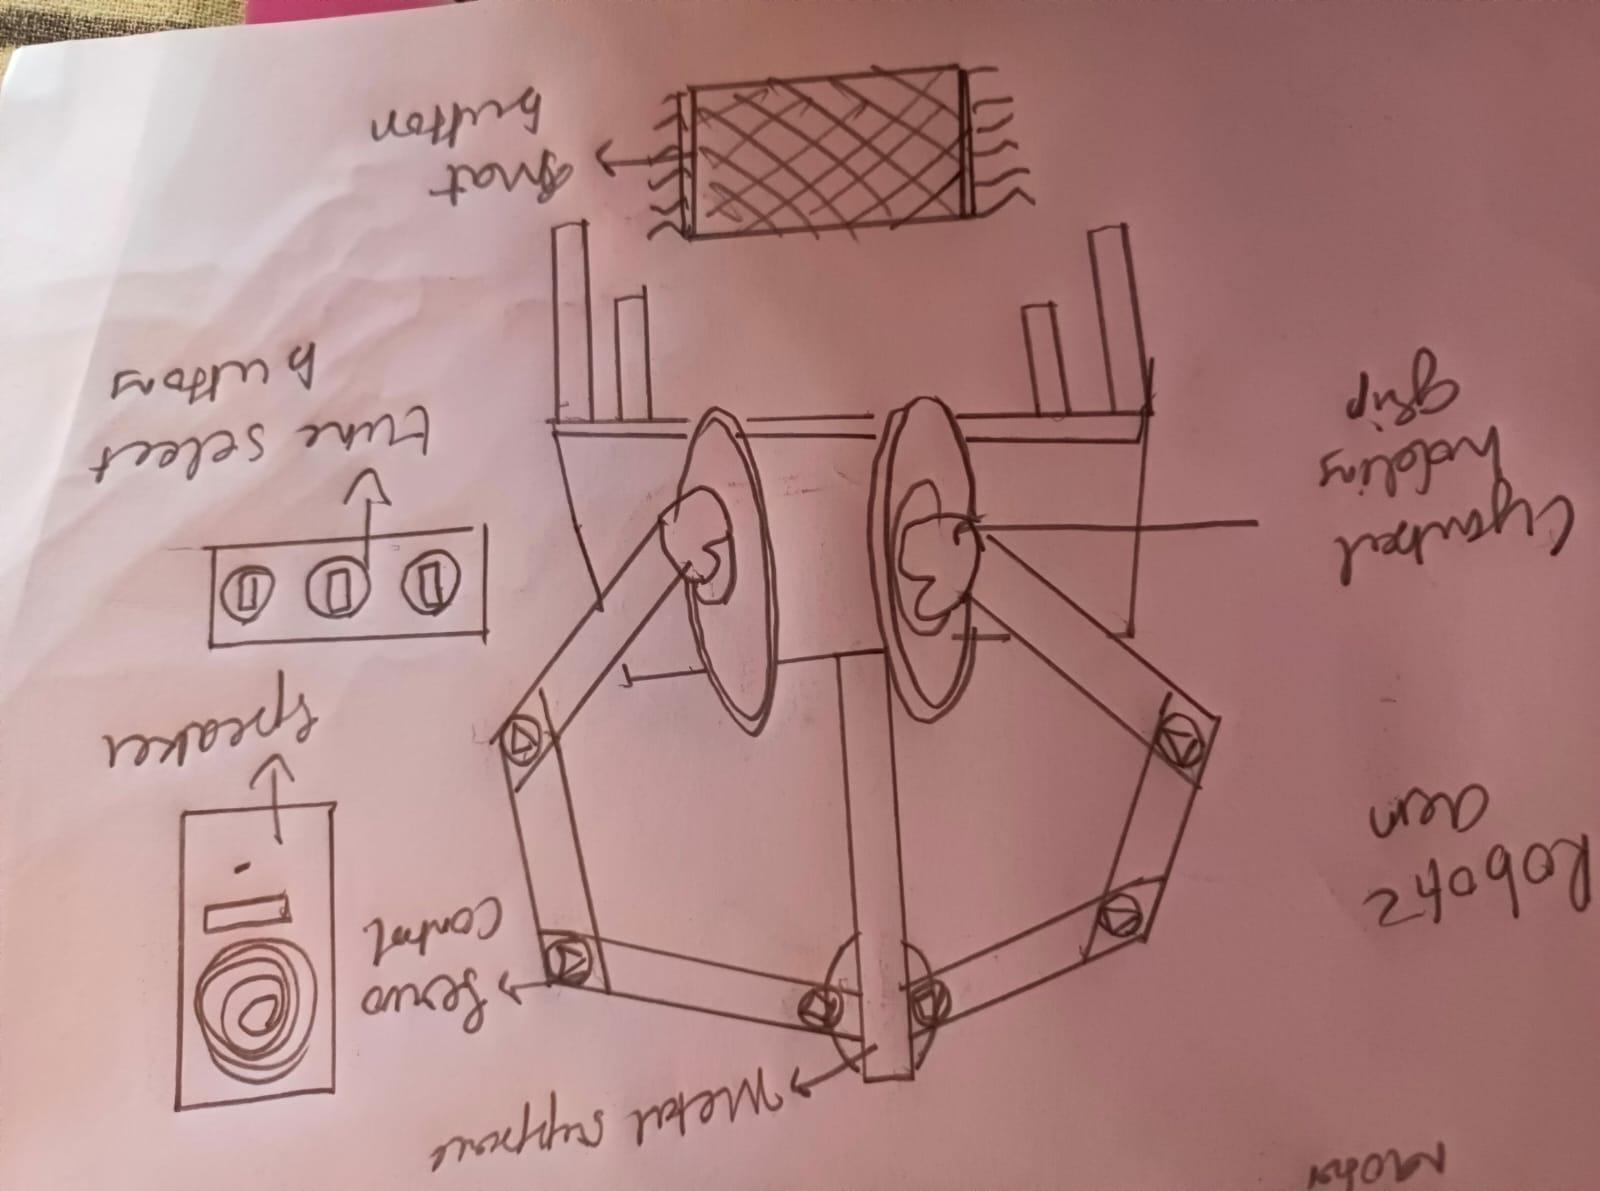 Motor
Metal support
Servo
control
Robotic
arm
speaker
Cymbal
holding
grip
tune select
buttons
mat
button